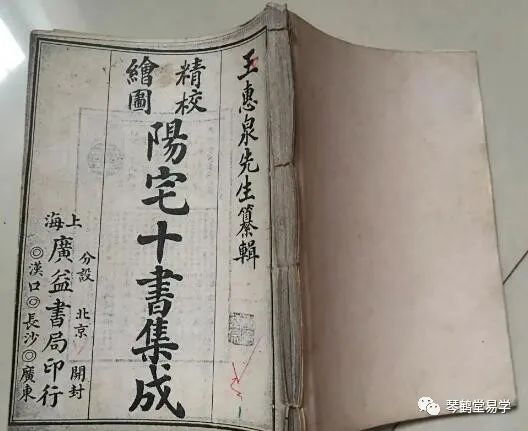 王惠泉先生纂輯
精校
繪圖
陽宅十書集成
上海
廣益書局印行
分設
北京 開封
◎漢口◎長沙◎廣東
琴鹤堂易学